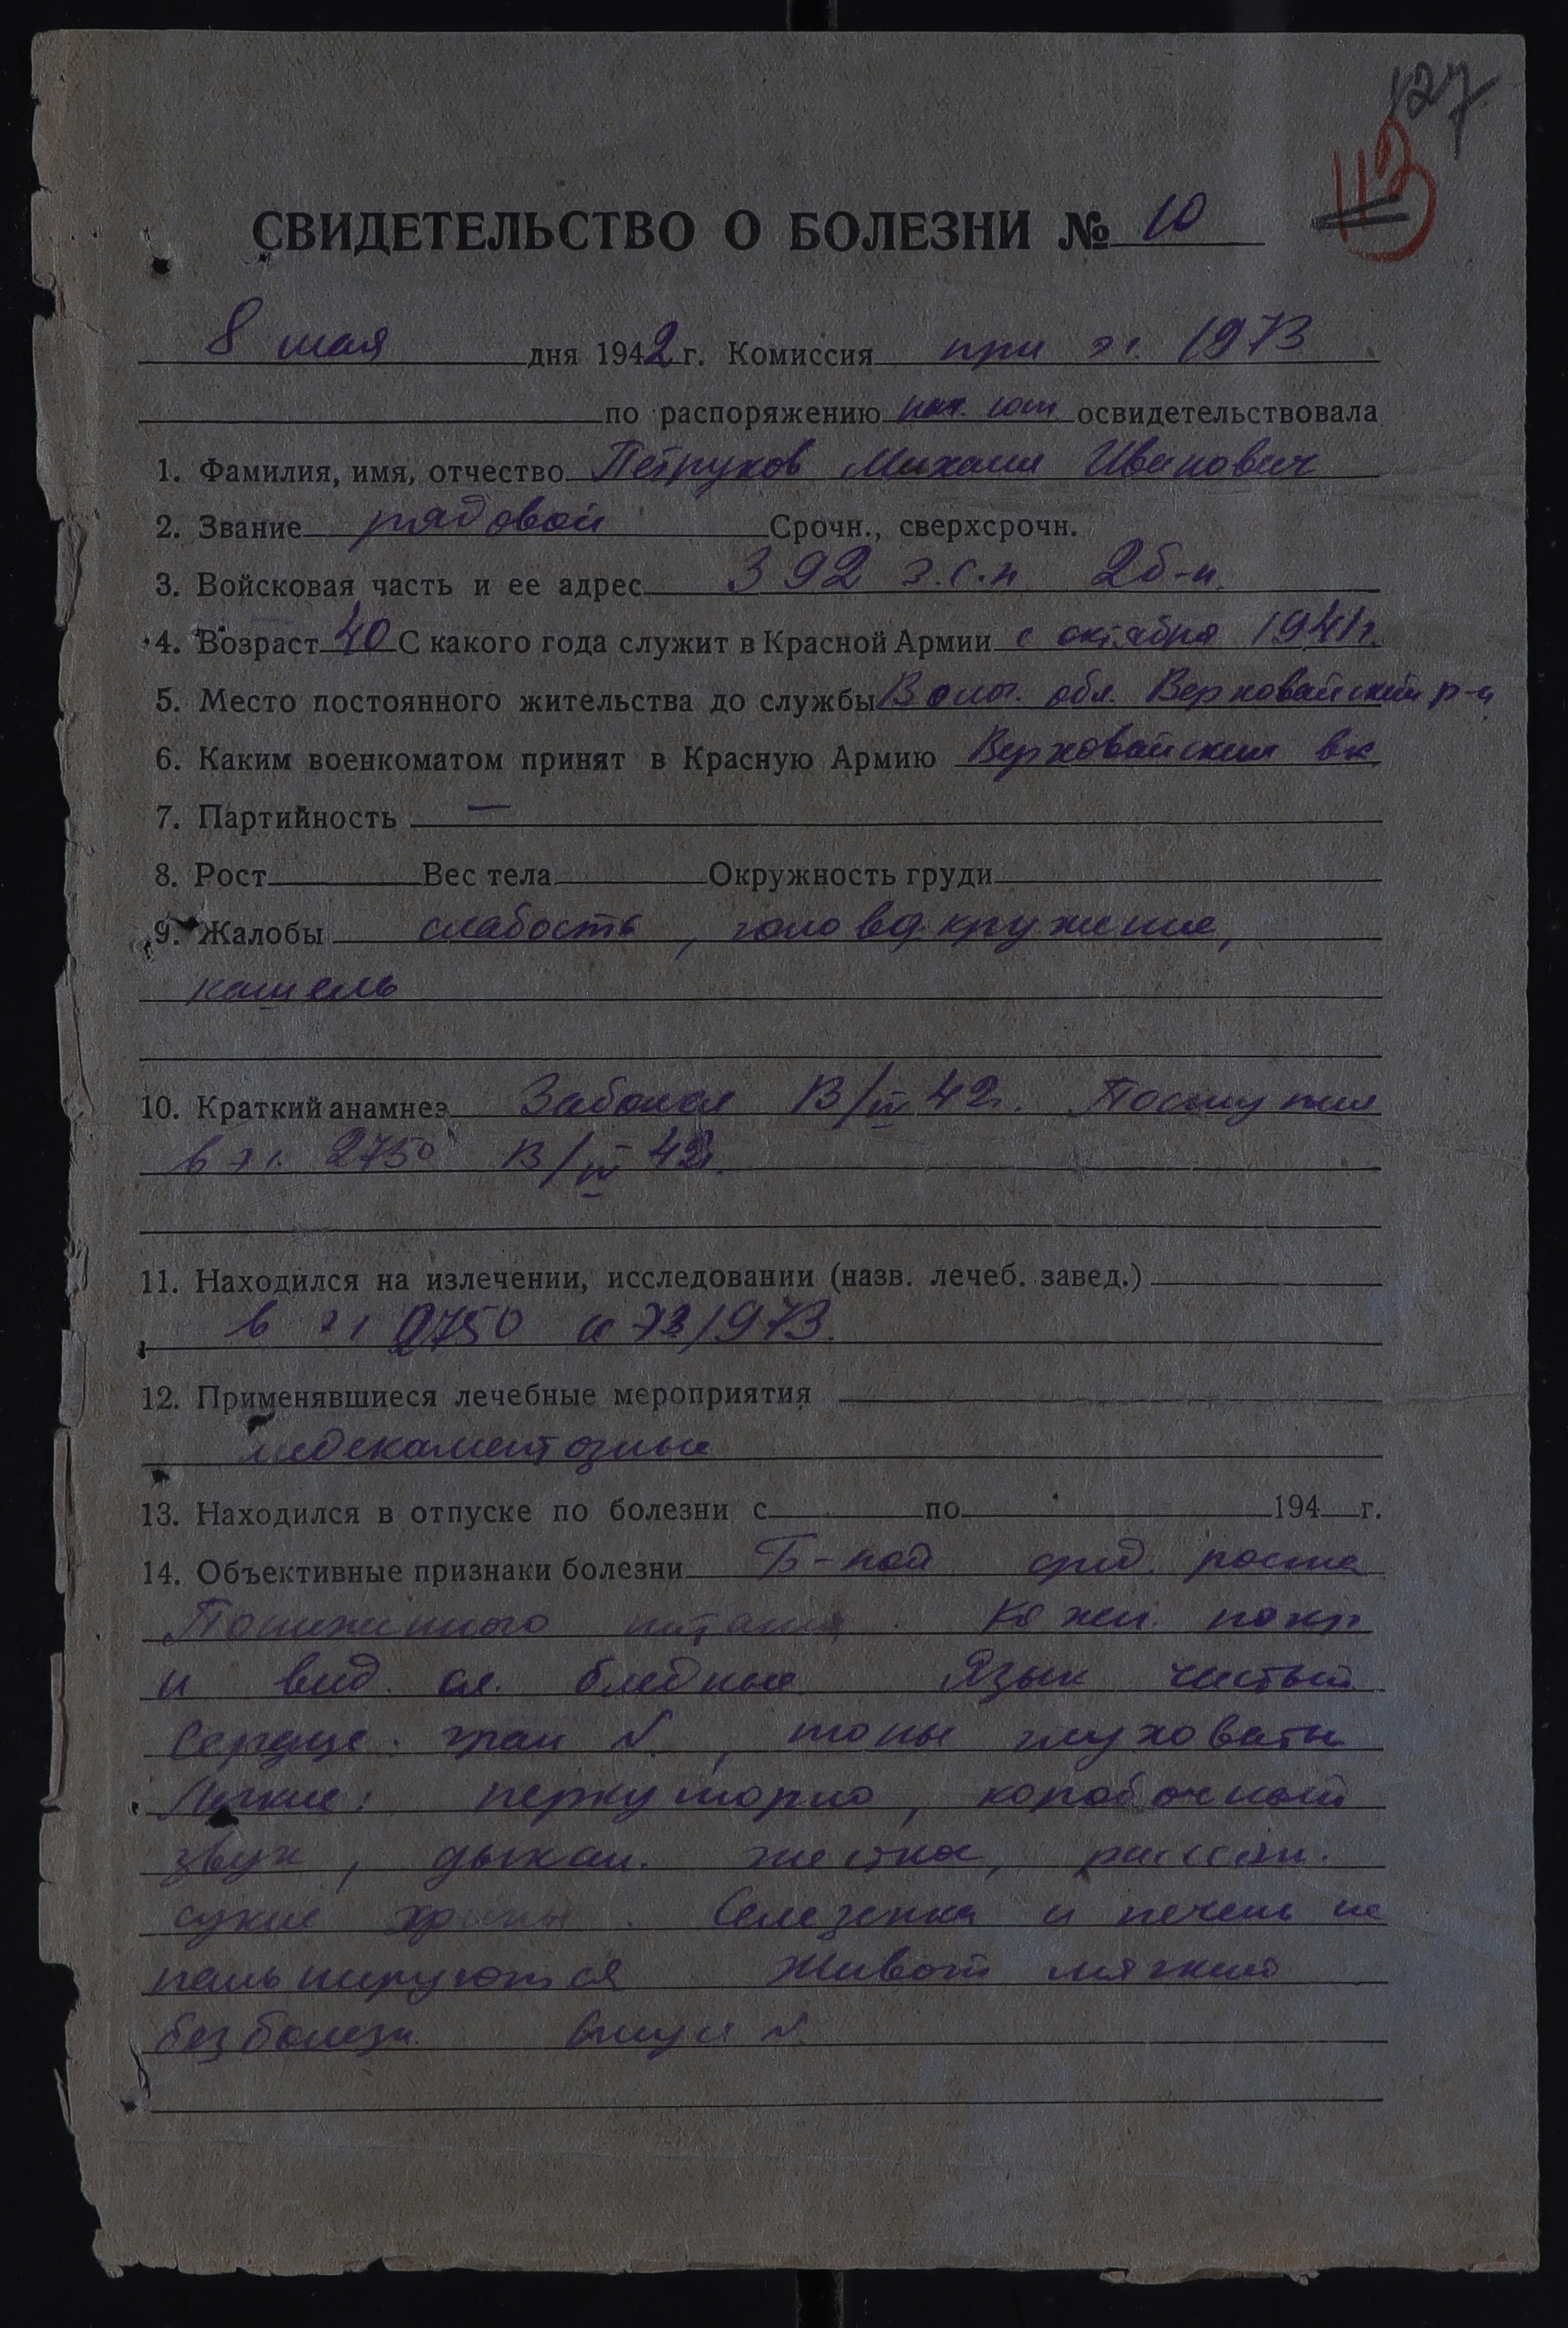 127
113
СВИДЕТЕЛЬСТВО О БОЛЕЗНИ № 10
8 мая дня 1942 г. Комиссия при эг. 1973
по распоряжению нач. освидетельствовала
1. Фамилия, имя, отчество Петруков Михаил Иванович
2. Звание рядовой Срочн., сверхсрочн.
3. Войсковая часть и ее адрес 392 з.с.п 2б-н.
4. Возраст 40 С какого года служит в Красной Армии с октября 1941г.
5. Место постоянного жительства до службы Волог. обл. Верховайский р-н
6. Каким военкоматом принят в Красную Армию Верховайским вк
7. Партийность —
8. Рост Вес тела Окружность груди
9. Жалобы слабость, головокружение,
кашель
10. Краткий анамнез Заболел 42г. Поступил
в эг. 2750 42г.
11. Находился на излечении, исследовании (назв. лечеб. завед.)
в эг 2750 и эг 1973.
12. Применявшиеся лечебные мероприятия
медекаментозные
13. Находился в отпуске по болезни с по 194 г.
14. Объективные признаки болезни Б-ной сред. роста
Пониженного питания. Кожн. покр
и вид. сл. бледные Язык чистый
Сердце: гран N., тоны глуховаты
Легкие: перкуторно, коробочный
звук, дыхан. жестко, рассеян.
сухие хрипы. Селезенка и печень не
пальпируются Живот мягкий
безболезн. N.